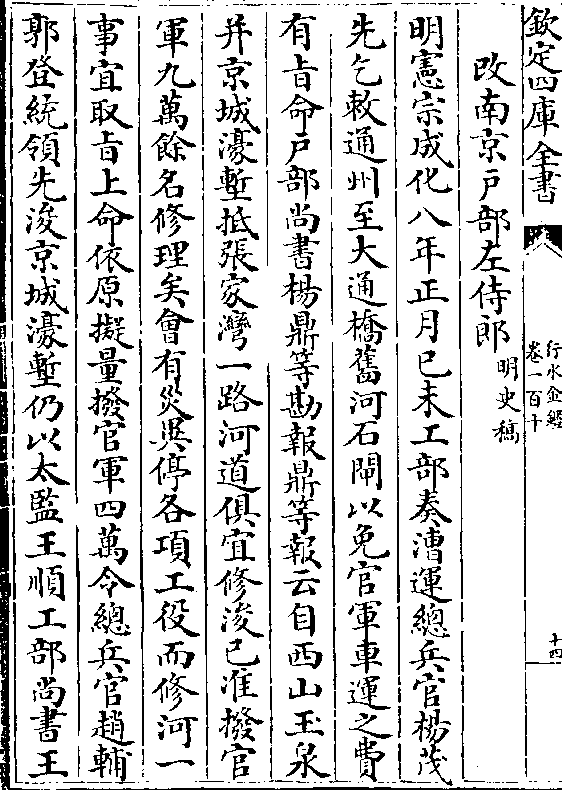 欽定四庫全書
行水金鑑
卷一百十
十四
改南京戸部左侍郎
明史稿
明憲宗成化八年正月己未工部奏漕運總兵官楊茂
先乞敕通州至大通橋舊河石閘以免官軍車運之費
有㫖命戸部尚書楊鼎等勘報鼎等報云自西山玉泉
并京城濠塹抵張家灣一路河道俱宜修浚已准撥官
軍九萬餘名修理矣會有災異停各項工役而修河一
事宜取㫖上命依原擬量撥官軍四萬令總兵官趙輔
郭登統領先浚京城濠塹仍以太監王順工部尚書王